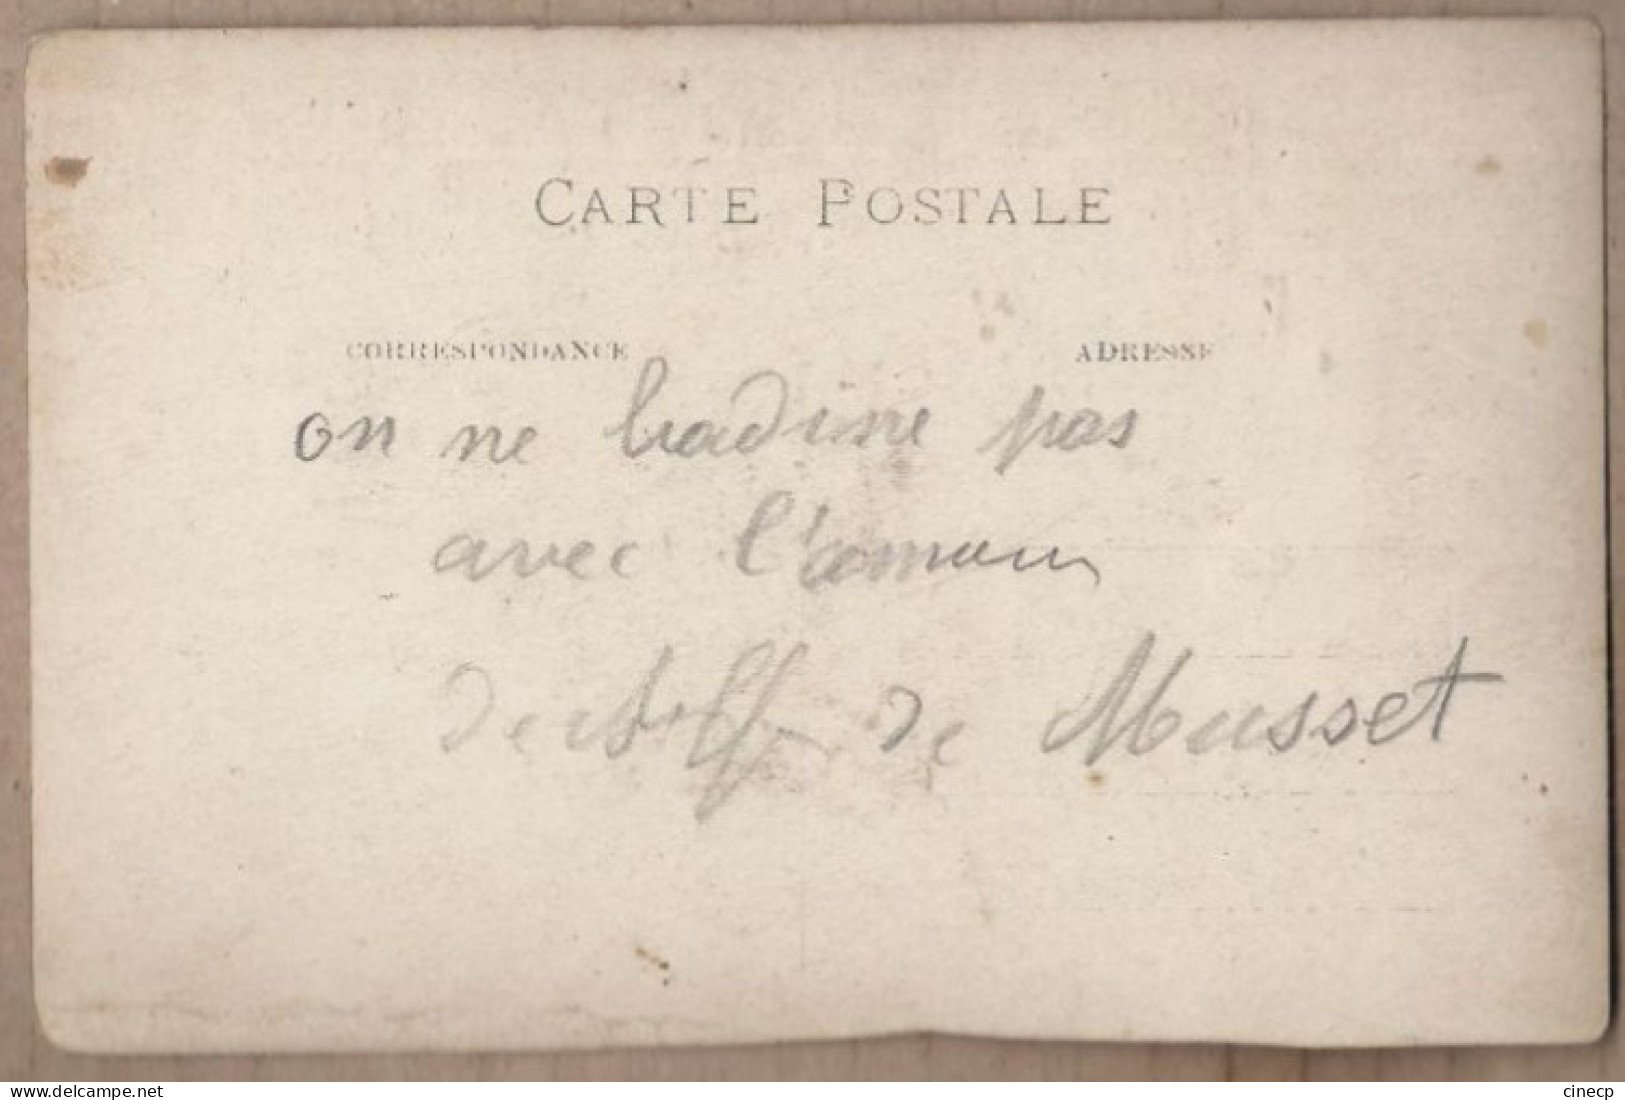 CARTE POSTALE
CORRESPONDANCE ADRESSE
on ne badine pas
avec l'amour
de de Musset
delcampe.net cinecp